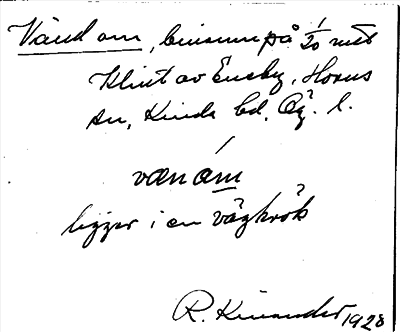 Vänd om, binamn på 1/0 mtl
Klint av Ensby, Horns
sn, Kinda hd, Ög. l.
vœnám
ligger i en vägkrök
R. Kinander 1928